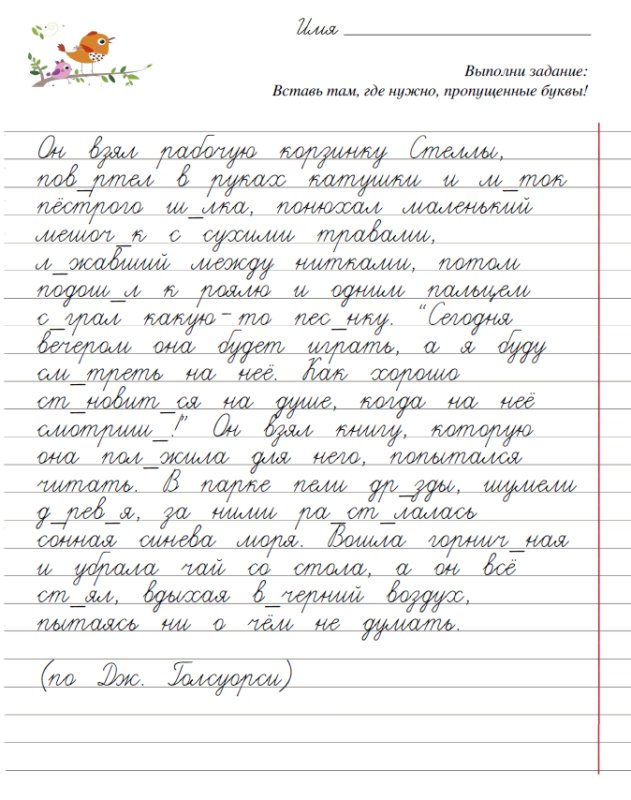 Имя
Выполни задание:
Вставь там, где нужно, пропущенные буквы!
Он взял рабочую корзинку Стеллы,
пов_ртел в руках катушки и м_ток
пёстрого ш_лка, понюхал маленький
мешоч_к с сухими травами,
л_жавший между нитками, потом
подош_л к роялю и одним пальцем
с_грал какую-то пес_нку. "Сегодня
вечером она будет играть, а я буду
см_треть на неё. Как хорошо
ст_новит_ся на душе, когда на неё
смотриш_!" Он взял книгу, которую
она пол_жила для него, попытался
читать. В парке пели др_зды, шумели
д_рев_я, за ними ра_ст_лалась
сонная синева моря. Вошла горнич_ная
и убрала чай со стола, а он всё
ст_ял, вдыхая в_черний воздух,
пытаясь ни о чём не думать.
(по Дж. Голсуорси)